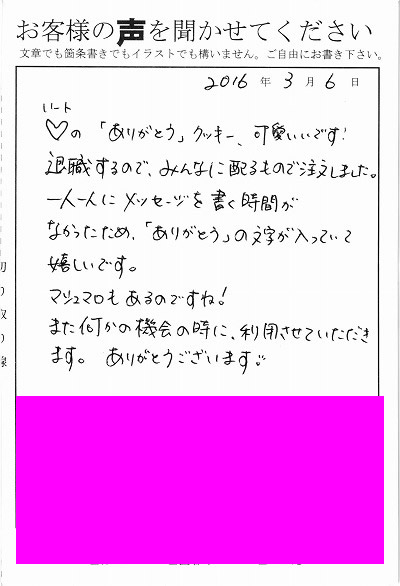 お客様の声を聞かせてください
文章でも箇条書きでもイラストでも構いません。ご自由にお書き下さい。
2016年3月6日
ハート
♡の「ありがとう」クッキー、可愛いいです!
退職するので、みんなに配るもので注文しました。
一人一人にメッセージを書く時間が
なかったため、「ありがとう」の文字が入っていて
嬉しいです。
マシュマロもあるのですね!
また何かの機会の時に、利用させていただき
ます。ありがとうございます
切り取り線